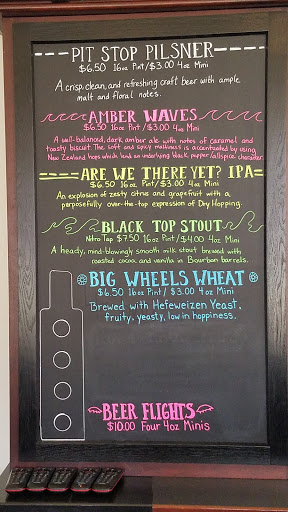 PIT STOP PILSNER
$6.50 16oz Pint/$3.00 4oz Mini
A crisp, clean, and refreshing craft beer with ample
malt and floral notes.
AMBER WAVES
$6.50 16oz Pint/$3.00 4oz Mini
A well-balanced, dark amber ale with notes of caramel and
toasty biscuit. The soft and spicy maltiness is accentuated by using
New Zealand hops which lend an underlying black pepper/allspice character.
ARE WE THERE YET? IPA
$6.50 16oz Pint/$3.00 4oz Mini
An explosion of zesty citrus and grapefruit with a
purposefully over-the-top expression of Dry Hopping.
BLACK TOP STOUT
Nitro Tap $7.50 16oz Pint/$4.00 4oz Mini
A heady, mind-blowingly smooth milk stout brewed with
roasted cocoa and vanilla in Bourbon barrels.
BIG WHEELS WHEAT
$6.50 16oz Pint/ $3.00 4oz Mini
Brewed with Hefeweizen Yeast,
fruity, yeasty, low in hoppiness.
BEER FLIGHTS
$10.00 Four 4oz Minis